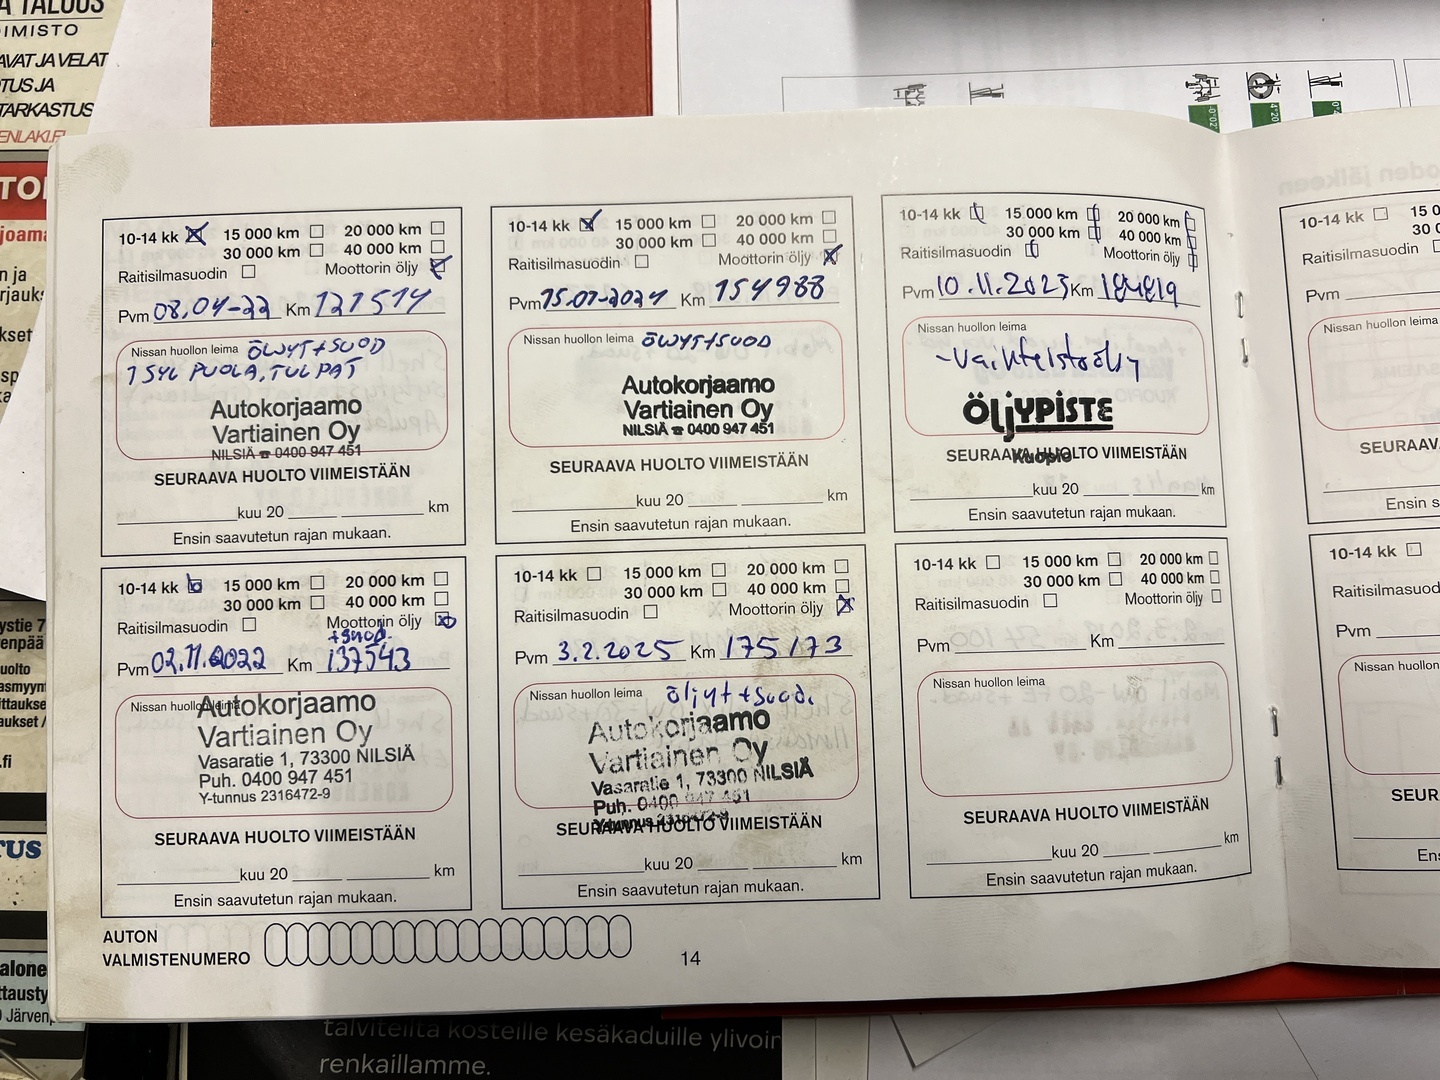 A TALOUS
OIMISTO
AVAT JA VELAT
OTUS JA
TARKASTUS
ENLAKI.FI
10-14 kk 15 000 km 20 000 km
30 000 km 40 000 km
Raitisilmasuodin Moottorin öljy
Pvm 08,04-22 Km 121514
Nissan huollon leima ÖLJYT+SUOD
1 SYL PUOLA, TULPAT
Autokorjaamo
Vartiainen Oy
NILSIÄ ☎ 0400 947 451
SEURAAVA HUOLTO VIIMEISTÄÄN
kuu 20 km
Ensin saavutetun rajan mukaan.
10-14 kk 15 000 km 20 000 km
30 000 km 40 000 km
Raitisilmasuodin Moottorin öljy
Pvm 15.01-2024 Km 154988
Nissan huollon leima ÖLJYT+SUOD
Autokorjaamo
Vartiainen Oy
NILSIÄ ☎ 0400 947 451
SEURAAVA HUOLTO VIIMEISTÄÄN
kuu 20 km
Ensin saavutetun rajan mukaan.
10-14 kk 15 000 km 20 000 km
30 000 km 40 000 km
Raitisilmasuodin Moottorin öljy
Pvm 10.11.2025 Km 184819
Nissan huollon leima
-Vaihteistoöljy
ÖLJYPISTE
Kuopio
SEURAAVA HUOLTO VIIMEISTÄÄN
kuu 20 km
Ensin saavutetun rajan mukaan.
10-14 kk 15 000 km 20 000 km
30 000 km 40 000 km
Raitisilmasuodin Moottorin öljy
+suod.
Pvm 02.11.2022 Km 137543
Nissan huollon leima
Autokorjaamo
Vartiainen Oy
Vasaratie 1, 73300 NILSIÄ
Puh. 0400 947 451
Y-tunnus 2316472-9
SEURAAVA HUOLTO VIIMEISTÄÄN
kuu 20 km
Ensin saavutetun rajan mukaan.
10-14 kk 15 000 km 20 000 km
30 000 km 40 000 km
Raitisilmasuodin Moottorin öljy
Pvm 3.2.2025 Km 175173
Nissan huollon leima öljyt+suod.
Autokorjaamo
Vartiainen Oy
Vasaratie 1, 73300 NILSIÄ
Puh. 0400 947 451
Y-tunnus 2316472-9
SEURAAVA HUOLTO VIIMEISTÄÄN
kuu 20 km
Ensin saavutetun rajan mukaan.
10-14 kk 15 000 km 20 000 km
30 000 km 40 000 km
Raitisilmasuodin Moottorin öljy
Pvm Km
Nissan huollon leima
SEURAAVA HUOLTO VIIMEISTÄÄN
kuu 20 km
Ensin saavutetun rajan mukaan.
AUTON
VALMISTENUMERO
14
10-14 kk
Raitisilmasuodin
Pvm
Nissan huollon leima
SEURAAVA
Ensin s
10-14 kk
Raitisilmasuodin
Pvm
Nissan huollon
SEUR
talviteiltä kosteille kesäkaduille ylivoin
renkaillamme.